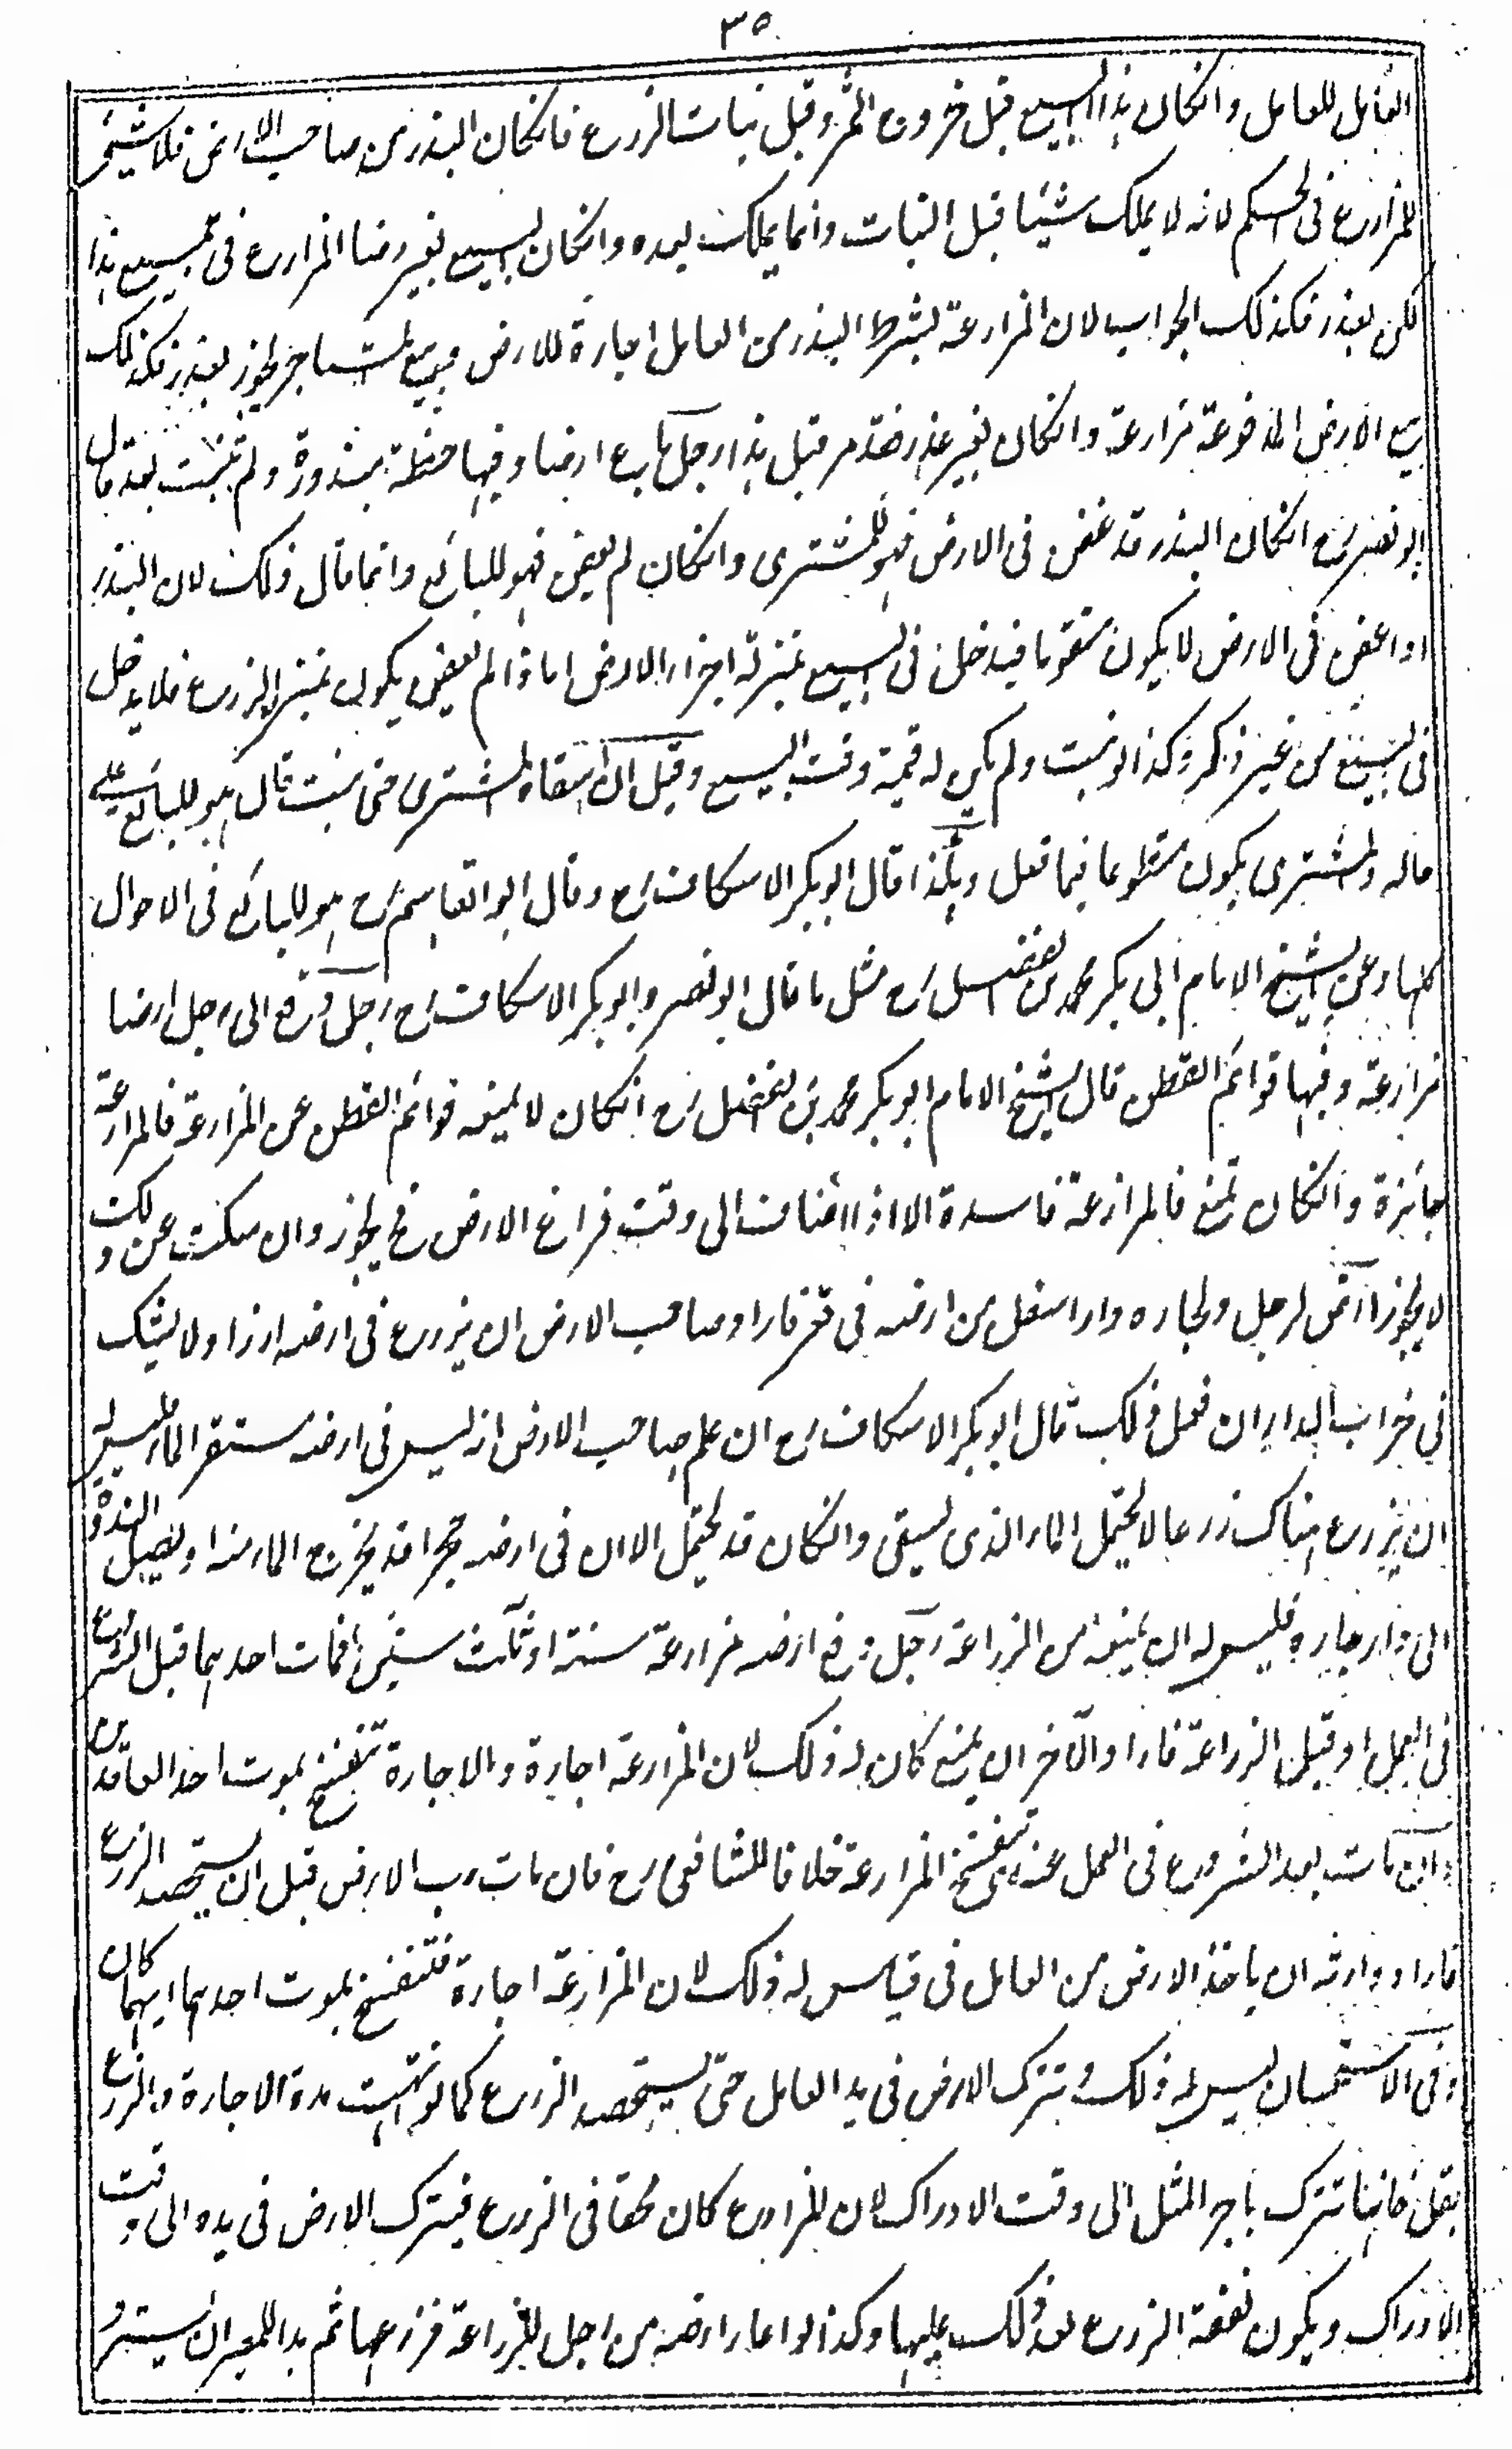 ٣٥
العامل للعامل وانكان هذا البيع قبل خروج الثمر وقبل نبات الزرع فانكان البذر من صاحب الارض فلا شيئ
للمزارع فى الحكم لانه لا يملك شيئا قبل النبات وانما يملك بعده وانكان البيع بغير رضا المزارع فى جميع هذا
لكن بعذر فكذلك الجواب لان المزارعة بشرط البذر من العامل اجارة للارض وبيع المستاجر يجوز بعذر فكذلك
بيع الارض المدفوعة مزارعة وانكان بغير عذر فقد مر قبل هذا رجل باع ارضا وفيها حنطة مبذورة ولم تنبت بعد قال
ابو نصر رح انكان البذر قد عفن فى الارض فهو للمشترى وانكان لم يعفن فهو للبائع وانما قال ذلك لان البذر
اذا عفن فى الارض لا يكون متقوما فيدخل فى البيع بمنزلة اجزاء الارض اما اذا لم يعفن يكون بمنزلة الزرع فلا يدخل
فى البيع من غير ذكر وكذا لو نبت ولم يكن له قيمة وقت البيع وقيل ان سقاه المشترى حتى نبت قال هو للبائع على
حاله والمشترى يكون متطوعا فيما فعل وهكذا قال ابو بكر الاسكاف رح وقال ابو القاسم رح هو للبائع فى الاحوال
كلها وعن الشيخ الامام ابى بكر محمد بن الفضل رح مثل ما قال ابو نصر وابو بكر الاسكاف رح رجل دفع الى رجل ارضا
مزارعة وفيها قوائم القطن قال الشيخ الامام ابو بكر محمد بن الفضل رح انكان لا يمنعه قوائم القطن عن المزارعة فالمزارعة
جائزة وانكان تمنع فالمزارعة فاسدة الا اذا اضافت الى وقت فراغ الارض فح يجوز وان سكت عن ذلك
لا يجوز ارض لرجل ولجاره دار اسفل من ارضه فى فاراد صاحب الارض ان يزرع فى ارضه ارزا ولا يشك
فى خراب الدار ان فعل ذلك قال ابو بكر الاسكاف رح ان علم صاحب الارض انه ليس فى ارضه مستقر الماء ليس له
ان يزرع هناك زرعا لا يحتمل الماء الذى يسقى وانكان قد يحتمل الا ان فى ارضه جحرا قد يخرج الماء منه او يصل الندوة
الى دار جاره فليس له ان يمنعه من الزراعة رجل دفع ارضه مزارعة سنة او ثلث سنين فمات احدهما قبل الشروع
فى العمل او قبل الزراعة فاراد الآخر ان يمنع كان له ذلك لان المزارعة اجارة والاجارة تنفسخ بموت احد العاقدين
وان مات بعد الشروع فى العمل عندنا تنفسخ المزارعة خلافا للشافعى رح فان مات رب الارض قبل ان يستحصد الزرع
فاراد وارثه ان ياخذ الارض من العامل فى قياس له ذلك لان المزارعة اجارة فتنفسخ بموت احدهما ايهما كان
وفى الاستحسان ليس له ذلك و يترك الارض فى يد العامل حتى يستحصد الزرع كما لو انتهت مدة الاجارة والزرع
بقل فانها تترك باجر المثل الى وقت الادراك لان المزارع كان محقا فى الزرع فيترك الارض فى يده الى وقت
الادراك ويكون نفقة الزرع بعد ذلك عليهما وكذا لو اعار ارضه من رجل للزراعة فزرعها ثم بدا للمعير ان يسترد